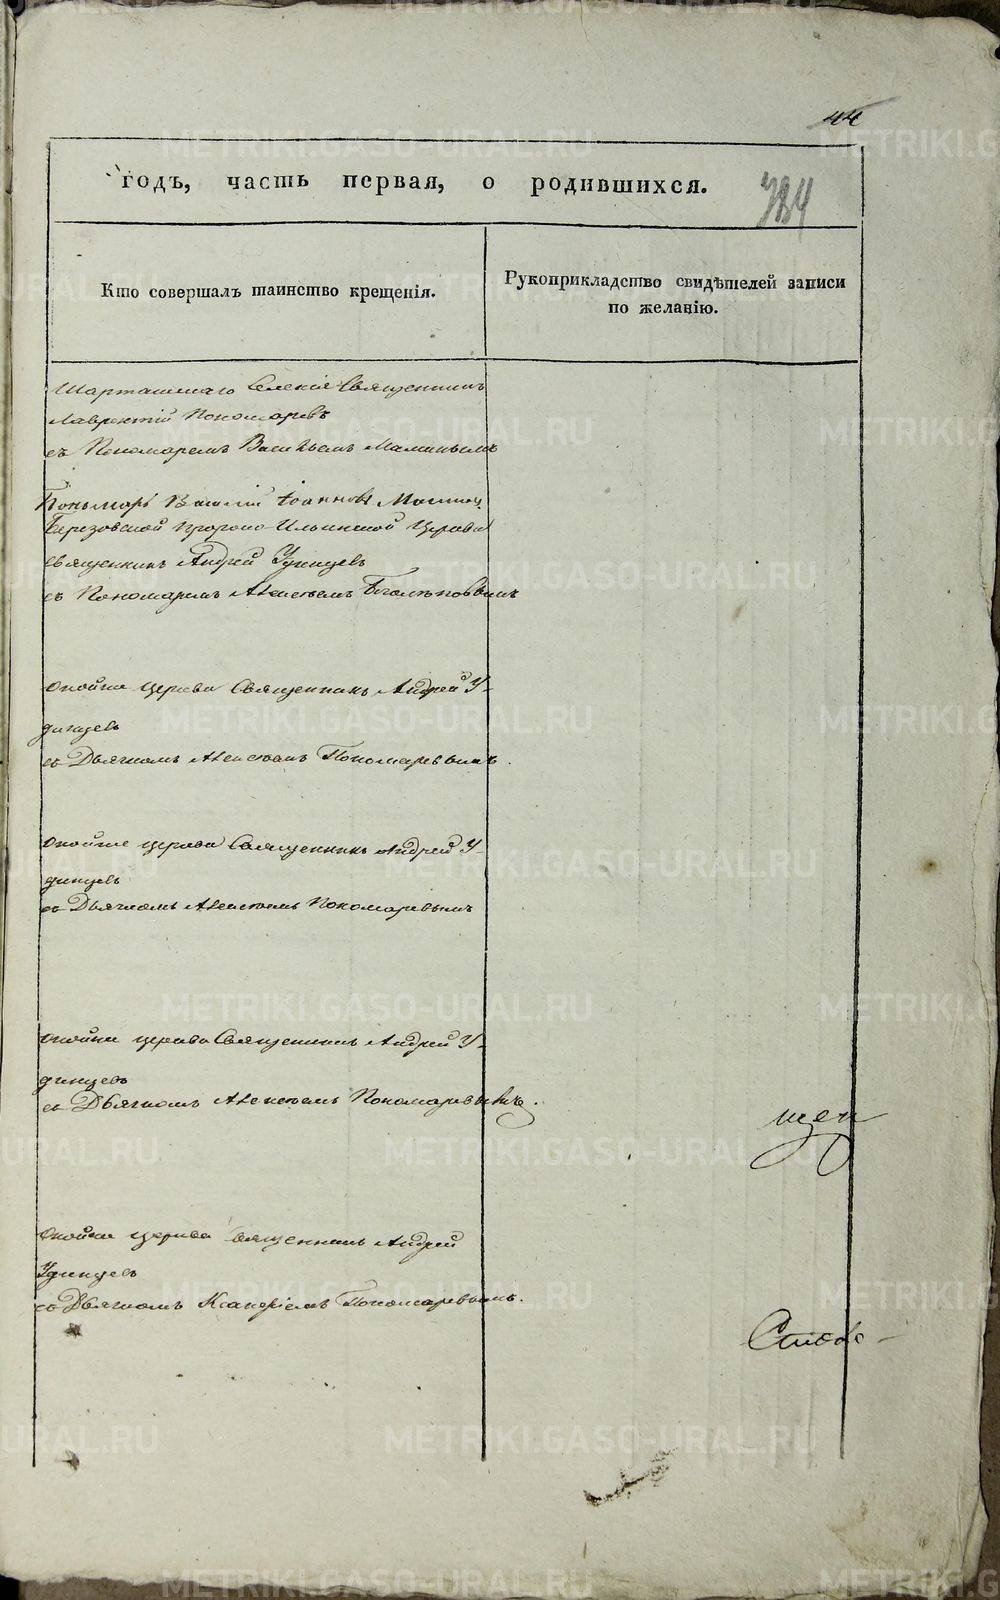 44
годъ, часть первая, о родившихся.
384
Кто совершалъ таинство крещенія.
Рукоприкладство свидѣтелей записи
по желанію.
Шарташскаго Селенія Священникъ
Лаврентій Пономаревъ
съ Пономаремъ Васильемъ
Пономарь Василій Іоанновъ
Березовской Пророко-Ильинской Церкви
священникъ Андрей Удинцевъ
съ Пономаремъ Алексѣемъ
оной же церкви Священникъ Андрей У-
динцевъ
съ Дьячкомъ Алексѣемъ Пономаревымъ.
оной же церкви Священникъ Андрей У-
динцевъ
съ Дьячкомъ Алексѣемъ Пономаревымъ
оной же церкви Священникъ Андрей У-
динцевъ
съ Дьячкомъ Алексѣемъ Пономаревымъ.
щен
оной же церкви Священникъ Андрей
Удинцевъ
съ Дьячкомъ Пономаревымъ.
METRIKI.GASO-URAL.RU